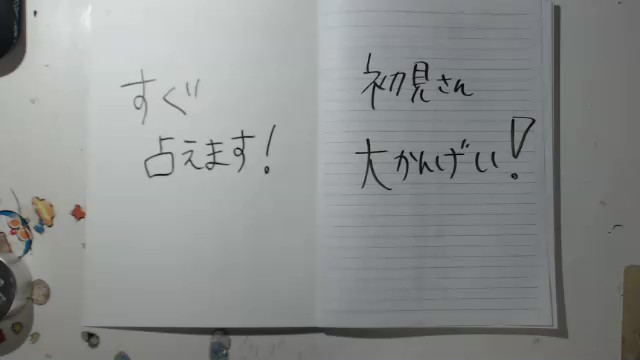 すぐ
占えます!
初見さん
大かんげい!